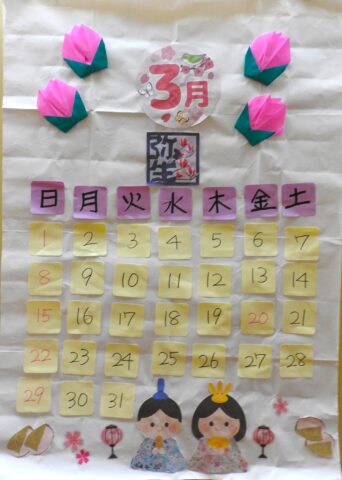 3月
弥生
日 月 火 水 木 金 土
1 2 3 4 5 6 7
8 9 10 11 12 13 14
15 16 17 18 19 20 21
22 23 24 25 26 27 28
29 30 31